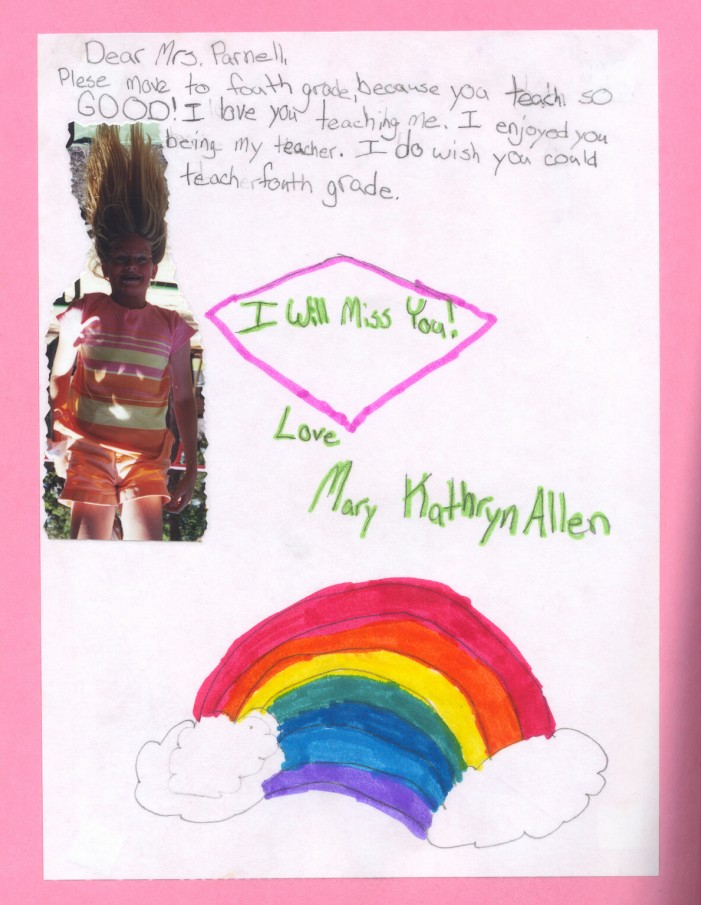 Dear Mrs. Parnell,
Plese move to fouth grade, because you teach so
GOOD! I love you teaching me. I enjoyed you
being my teacher. I do wish you could
teach fouth grade.
I Will Miss You!
Love
Mary Kathryn Allen